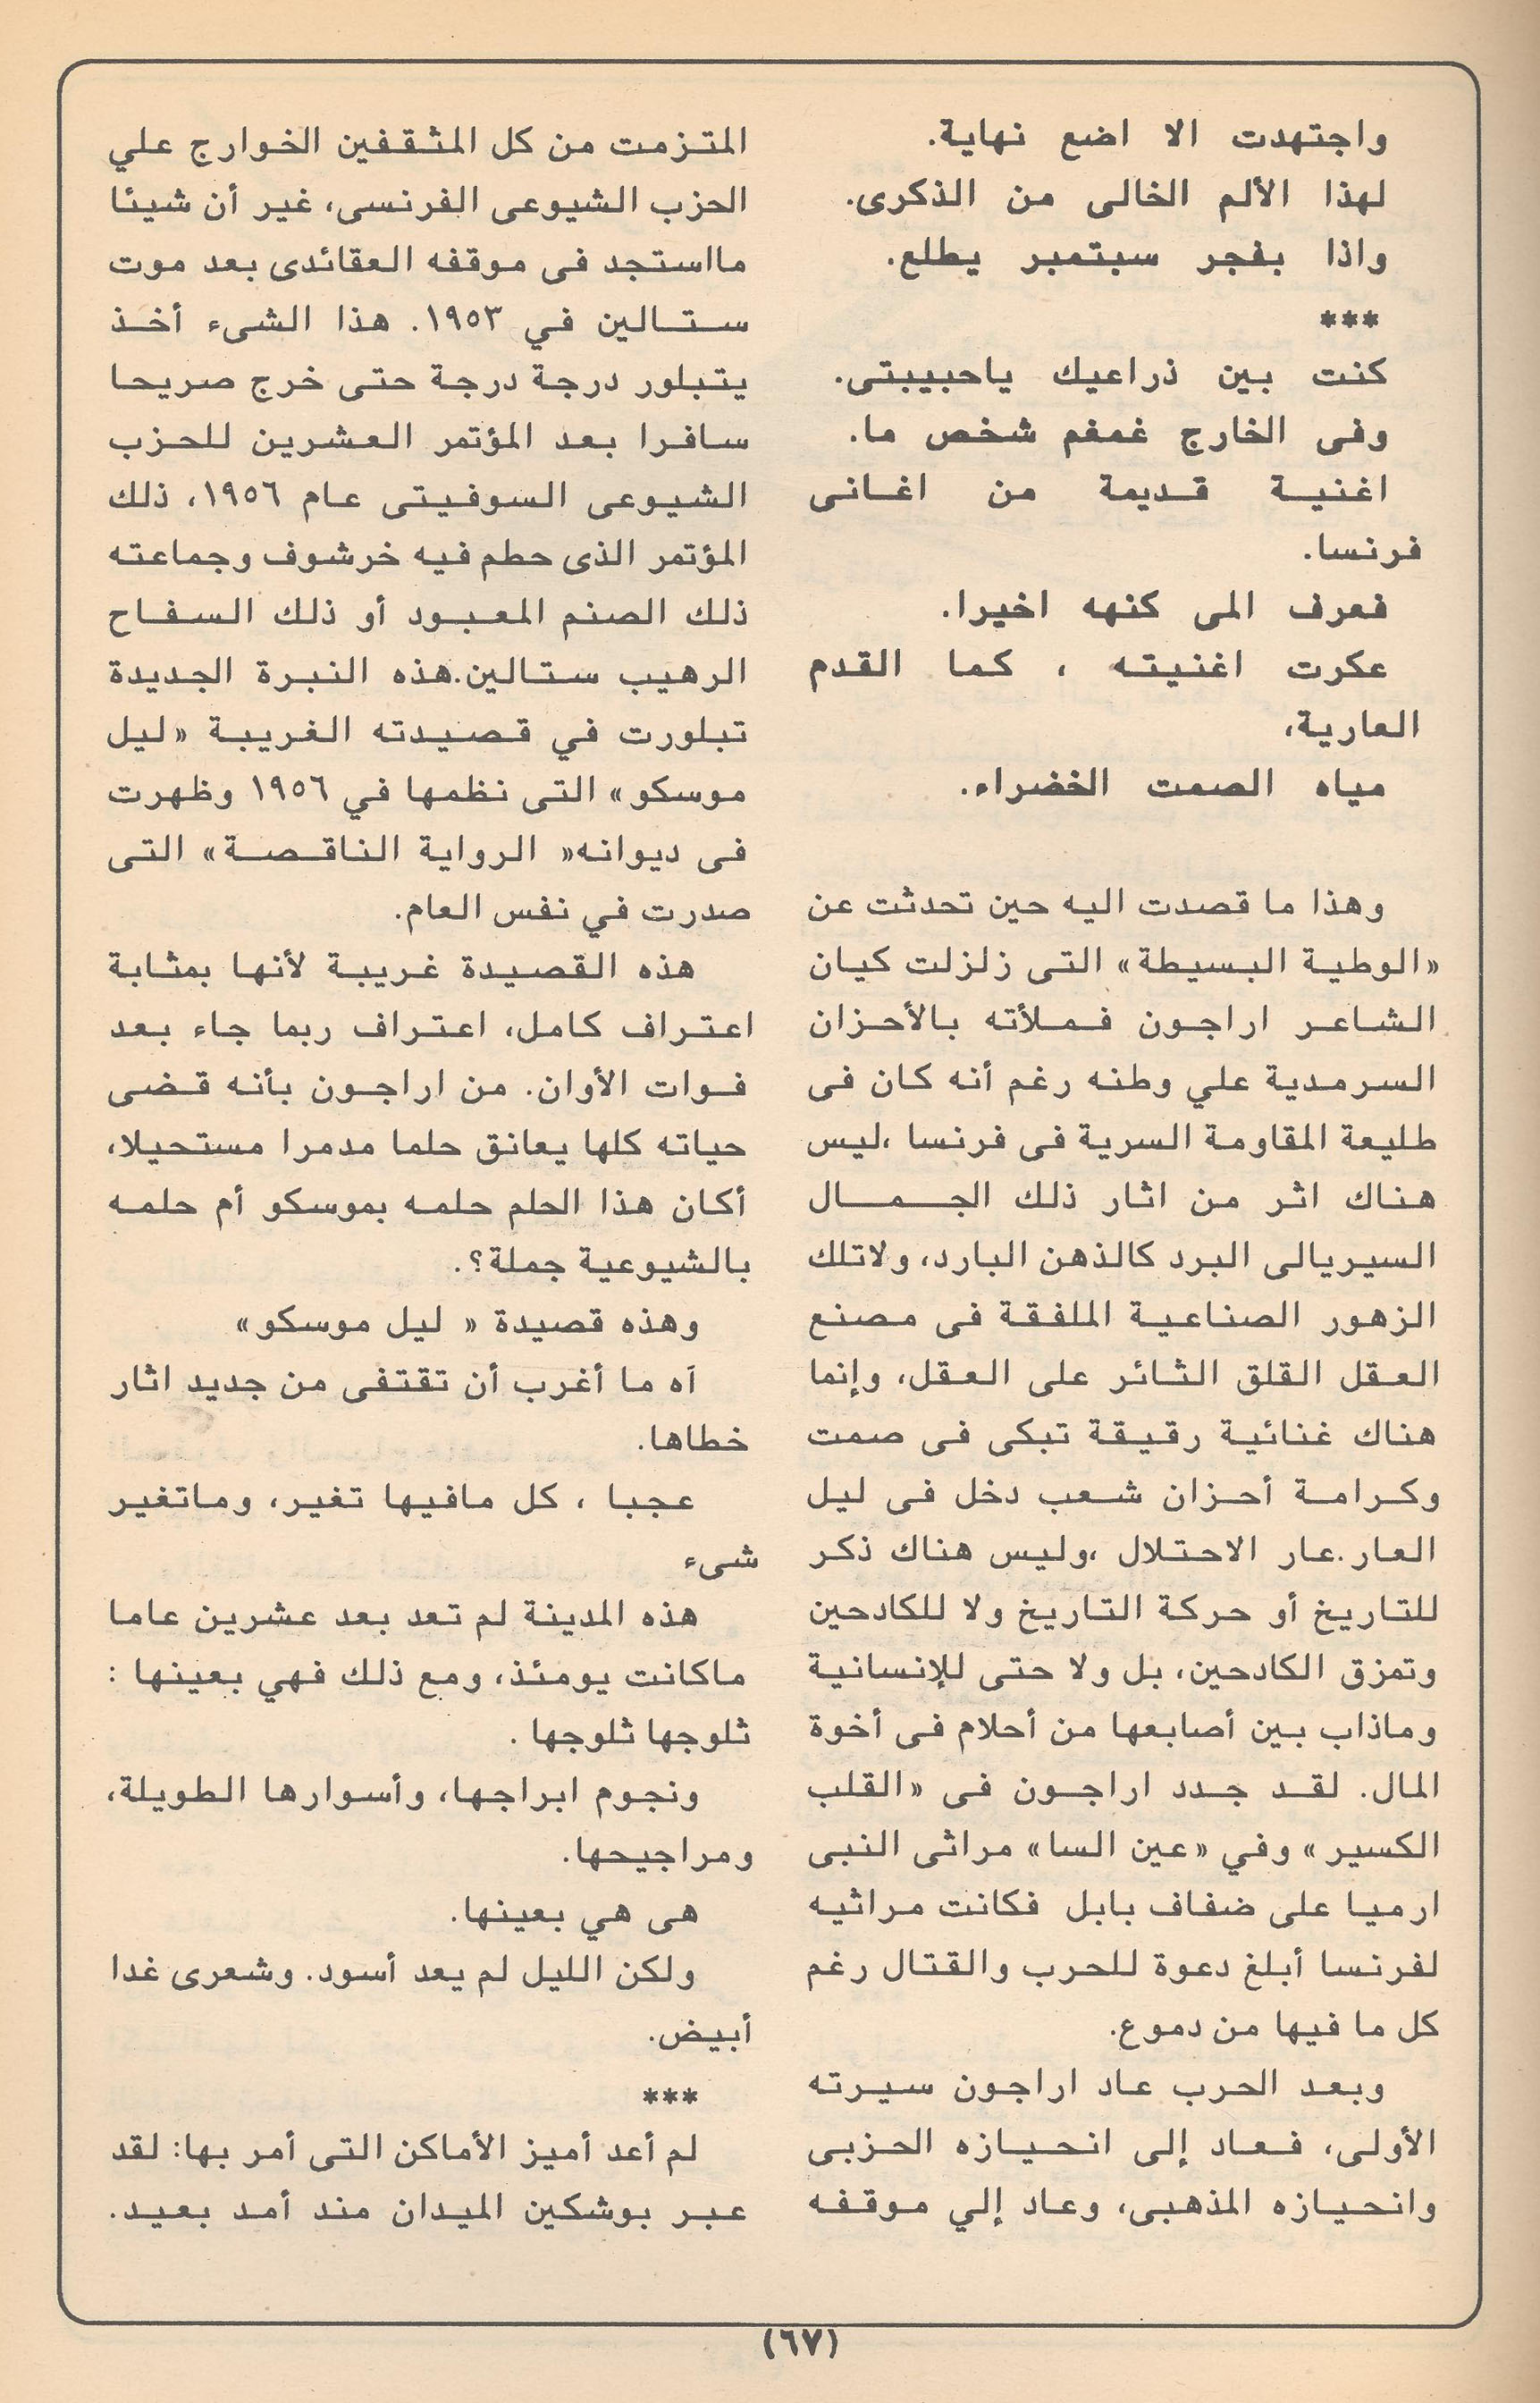 واجتهدت الا اضع نهاية.
لهذا الألم الخالى من الذكرى.
واذا بفجر سبتمبر يطلع.
***
كنت بين ذراعيك ياحبيبتى.
وفى الخارج غمغم شخص ما.
اغنية قديمة من اغانى
فرنسا.
فعرف المى كنهه اخيرا.
عكرت اغنيته ، كما القدم
العارية،
مياه الصمت الخضراء.
وهذا ما قصدت اليه حين تحدثت عن
«الوطية البسيطة» التى زلزلت كيان
الشاعر اراجون فملأته بالأحزان
السرمدية علي وطنه رغم أنه كان فى
طليعة المقاومة السرية فى فرنسا ،ليس
هناك اثر من اثار ذلك الجمال
السيريالى البرد كالذهن البارد، ولاتلك
الزهور الصناعية الملفقة فى مصنع
العقل القلق الثائر على العقل، وإنما
هناك غنائية رقيقة تبكى فى صمت
وكرامة أحزان شعب دخل فى ليل
العار.عار الاحتلال ،وليس هناك ذكر
للتاريخ أو حركة التاريخ ولا للكادحين
وتمزق الكادحين، بل ولا حتى للإنسانية
وماذاب بين أصابعها من أحلام فى أخوة
المال. لقد جدد اراجون فى «القلب
الكسير» وفي «عين السا» مراثى النبى
ارميا على ضفاف بابل فكانت مراثيه
لفرنسا أبلغ دعوة للحرب والقتال رغم
كل ما فيها من دموع.
وبعد الحرب عاد اراجون سيرته
الأولى، فعاد إلى انحيازه الحزبى
وانحيازه المذهبى، وعاد إلي موقفه
المتزمت من كل المثقفين الخوارج علي
الحزب الشيوعى الفرنسى، غير أن شيئا
مااستجد فى موقفه العقائدى بعد موت
ستالين في ١٩٥٣. هذا الشىء أخذ
يتبلور درجة درجة حتى خرج صريحا
سافرا بعد المؤتمر العشرين للحزب
الشيوعى السوفيتى عام ١٩٥٦، ذلك
المؤتمر الذى حطم فيه خرشوف وجماعته
ذلك الصنم المعبود أو ذلك السفاح
الرهيب ستالين.هذه النبرة الجديدة
تبلورت في قصيدته الغريبة «ليل
موسكو» التى نظمها في ١٩٥٦ وظهرت
فى ديوانه« الرواية الناقصة» التى
صدرت في نفس العام.
هذه القصيدة غريبة لأنها بمثابة
اعتراف كامل، اعتراف ربما جاء بعد
فوات الأوان. من اراجون بأنه قضى
حياته كلها يعانق حلما مدمرا مستحيلا،
أكان هذا الحلم حلمه بموسكو أم حلمه
بالشيوعية جملة؟.
وهذه قصيدة « ليل موسكو»
آه ما أغرب أن تقتفى من جديد اثار
خطاها.
عجبا ، كل مافيها تغير، وماتغير
شىء
هذه المدينة لم تعد بعد عشرين عاما
ماكانت يومئذ، ومع ذلك فهي بعينها :
ثلوجها ثلوجها .
ونجوم ابراجها، وأسوارها الطويلة،
ومراجيحها.
هى هي بعينها.
ولكن الليل لم يعد أسود. وشعرى غدا
أبيض.
***
لم أعد أميز الأماكن التى أمر بها: لقد
عبر بوشكين الميدان مند أمد بعيد.
(٦٧)